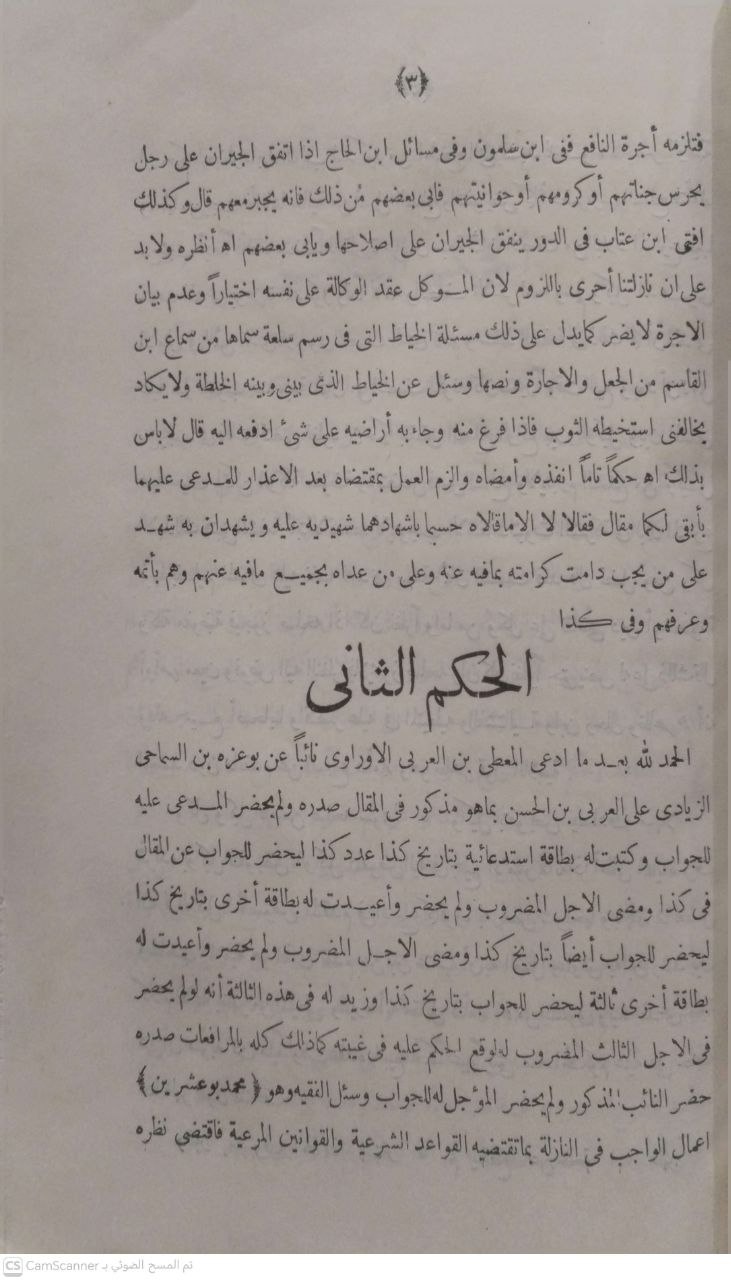 ﴿٣﴾
فتلزمه أجرة النافع ففى ابن سلمون وفى مسائل ابن الحاج اذا اتفق الجيران على رجل
يحرس جناتهم أو كرومهم أو حوانيتهم فابى بعضهم من ذلك فانه يجبر معهم قال وكذلك
افتى ابن عتاب فى الدور يتفق الجيران على اصلاحها ويابى بعضهم اه أنظره ولا بد
على ان نازلتنا أحرى باللزوم لان الموكل عقد الوكالة على نفسه اختياراً وعدم بيان
الاجرة لا يضر كما يدل على ذلك مسئلة الخياط التى فى رسم سلعة سماها من سماع ابن
القاسم من الجعل والاجارة ونصها وسئل عن الخياط الذى بينى وبينه الخلطة ولا يكاد
يخالفنى استخيطه الثوب فاذا فرغ منه وجاء به أراضيه على شىء ادفعه اليه قال لا باس
بذلك اه حكماً تاماً انفذه وأمضاه والزم العمل بمقتضاه بعد الاعذار للمدعى عليهما
بأبقى لكما مقال فقالا لا الا ما قالاه حسبما باشهادهما شهيديه عليه ويشهدان به شهد
على من يجب دامت كرامته بمافيه عنه وعلى من عداه بجميع مافيه عنهم وهم بأتمه
وعرفهم وفى كذا
الحكم الثانى
الحمد لله بعد ما ادعى المعطى بن العربى الاوراوى نائباً عن بوعزه بن السماحى
الزيادى على العربى بن الحسن بماهو مذكور فى المقال صدره ولم يحضر المدعى عليه
للجواب وكتبت له بطاقة استدعائية بتاريخ كذا عدد كذا ليحضر للجواب عن المقال
فى كذا ومضى الاجل المضروب ولم يحضر وأعيدت له بطاقة أخرى بتاريخ كذا
ليحضر للجواب أيضاً بتاريخ كذا ومضى الاجل المضروب ولم يحضر وأعيدت له
بطاقة أخرى ثالثة ليحضر للجواب بتاريخ كذا وزيد له فى هذه الثالثة أنه لولم يحضر
فى الاجل الثالث المضروب له لوقع الحكم عليه فى غيبته كماذلك كله بالمرافعات صدره
حضر النائب المذكور ولم يحضر المؤجل له للجواب وسئل الفقيه وهو ﴿ محمد بوعشرين ﴾
اعمال الواجب فى النازلة بماتقتضيه القواعد الشرعية والقوانين المرعية فاقتضى نظره
CS CamScanner تم المسح الضوئي بـ